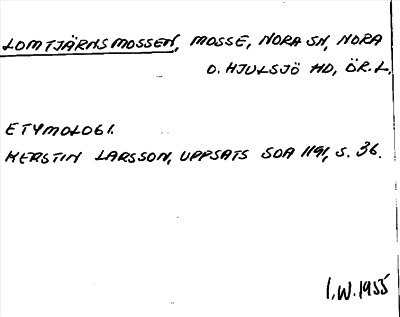 LOMTJÄRNSMOSSEN, MOSSE, NORA SN, NORA
O. HJULSJÖ HD, ÖR.L.
ETYMOLOGI.
KERSTIN LARSSON, UPPSATS SOA 1191, S. 36.
I.W. 1955